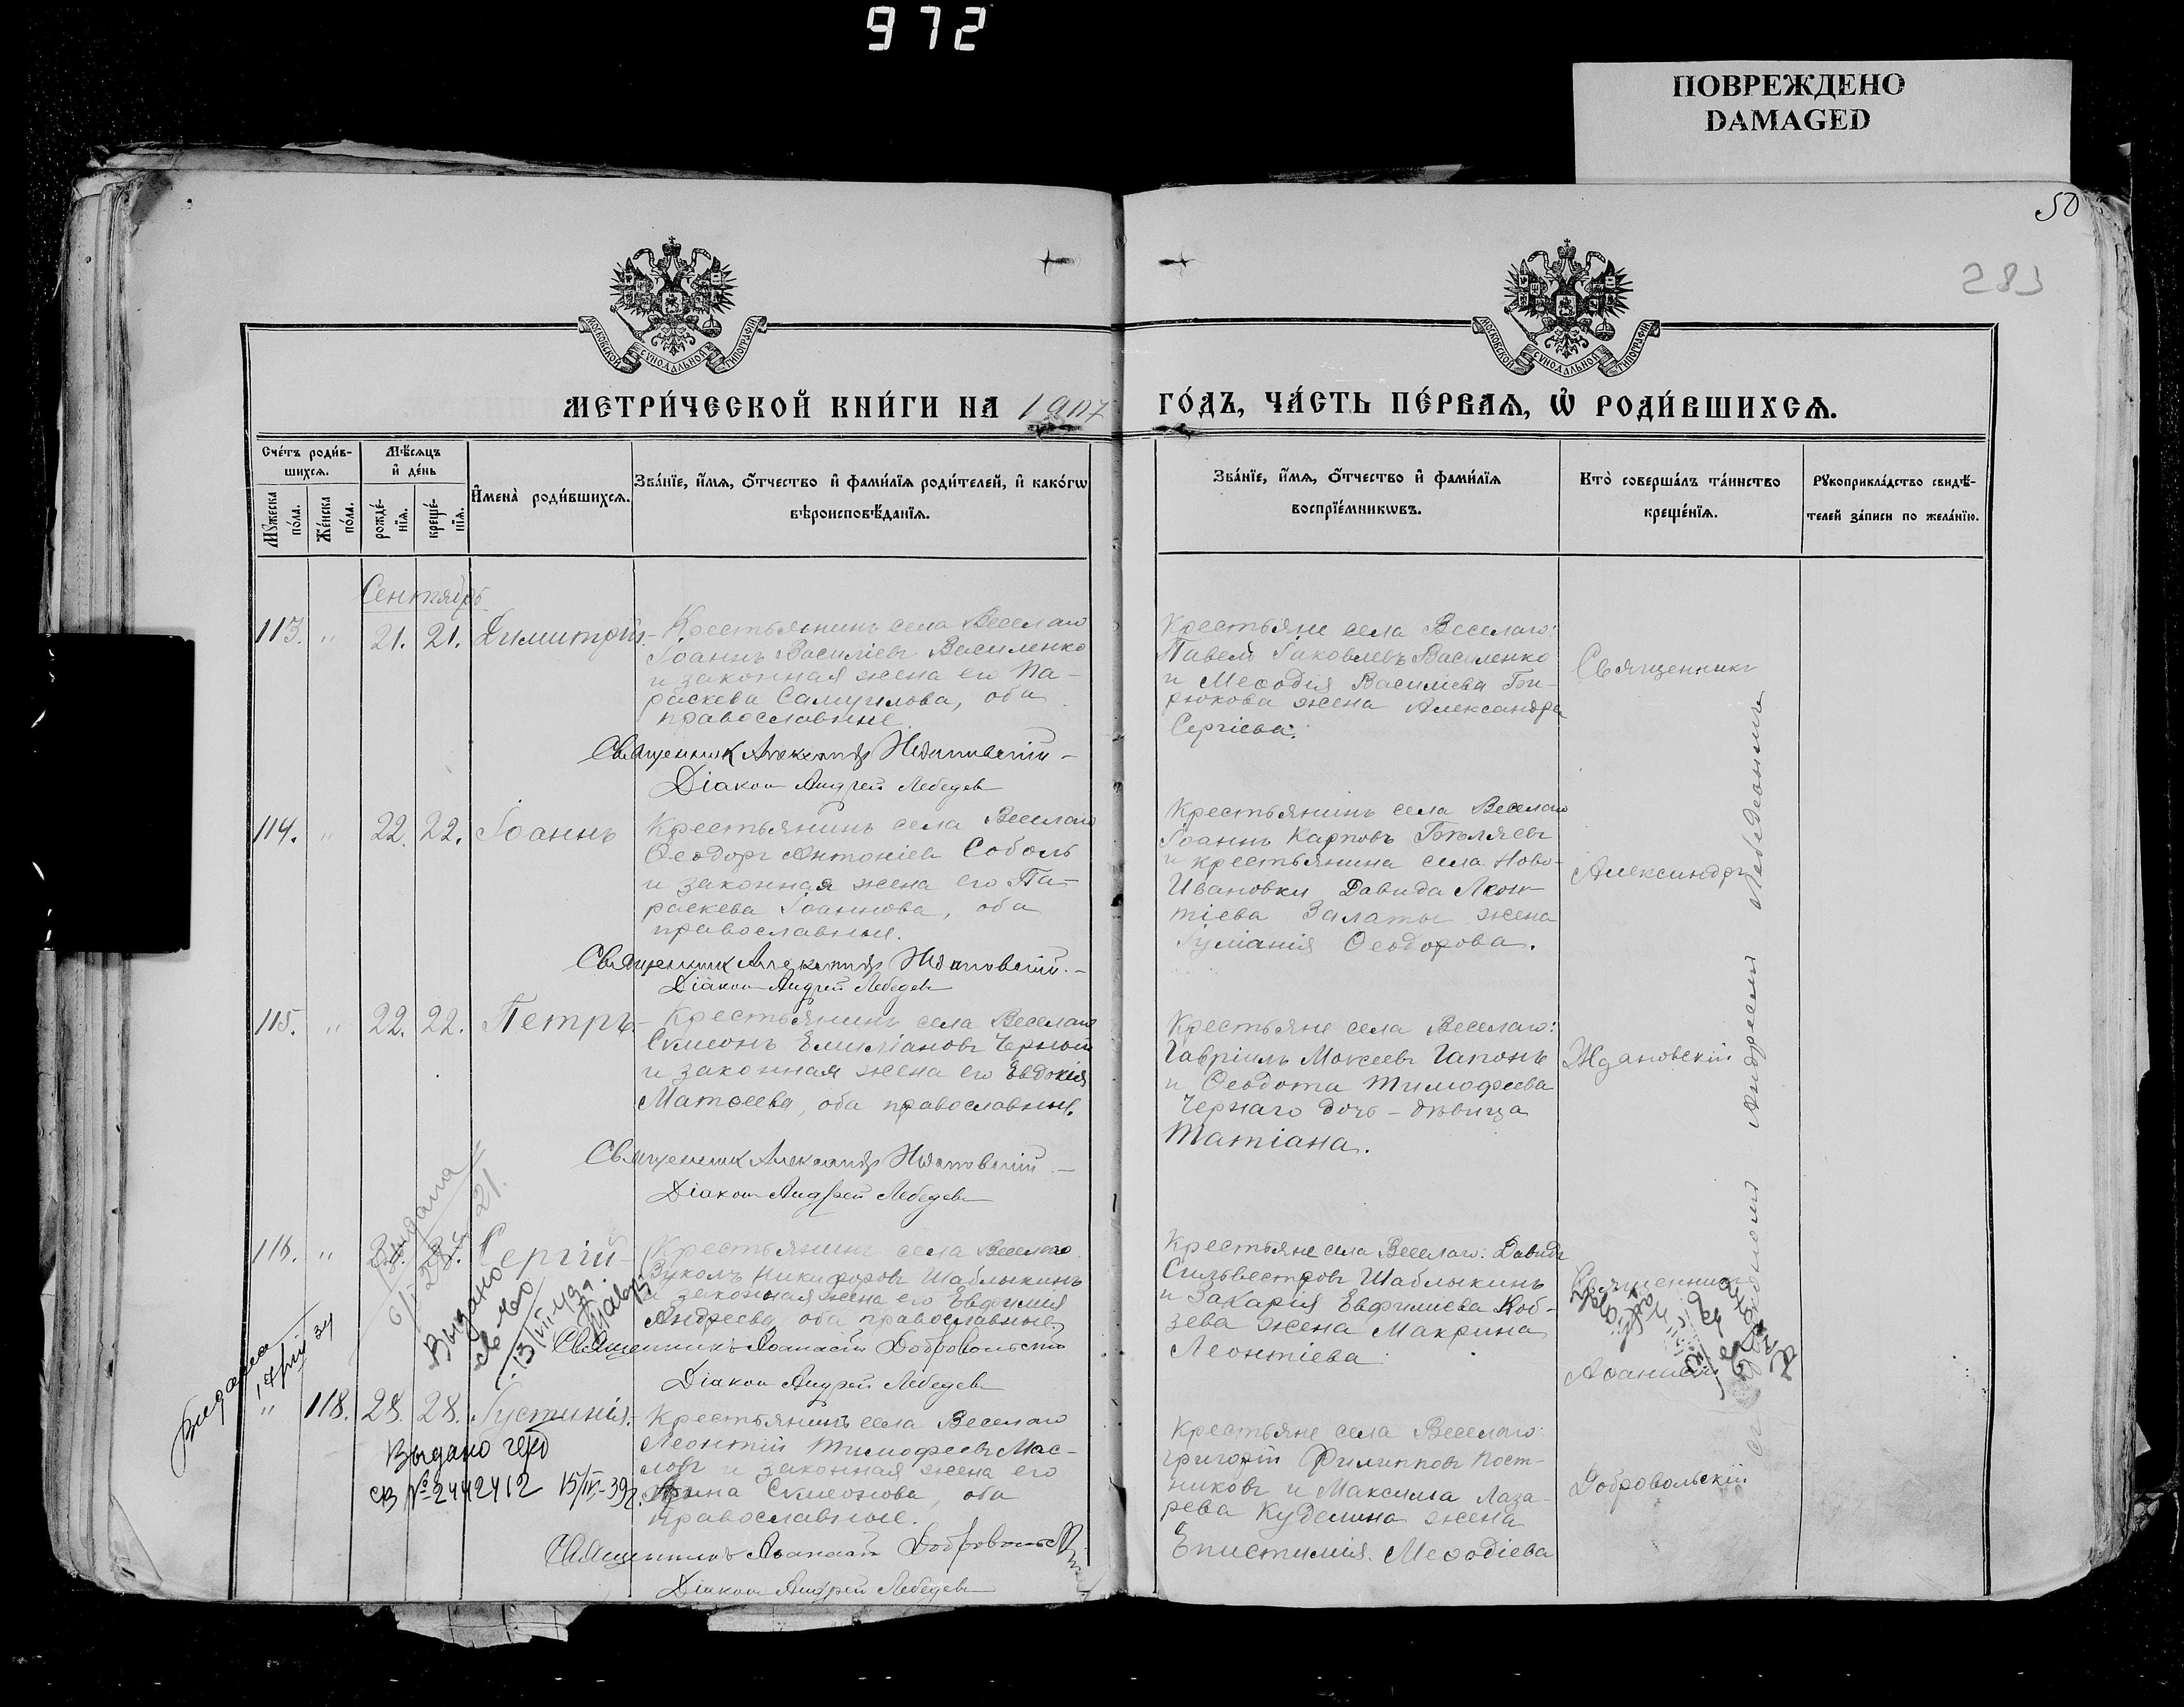 972
ПОВРЕЖДЕНО
DAMAGED
50
283
МОСКОВСКОЙ СѴНОДАЛЬНОЙ ТИПОГРАФІИ
МОСКОВСКОЙ СѴНОДАЛЬНОЙ ТИПОГРАФІИ
МЕТРИ́ЧЕСКОЙ КНИ́ГИ НА 1907 ГО́ДЪ, ЧА́СТЬ ПЕ́РВАЯ, Ѡ҆ РОДИ́ВШИХСЯ.
Сче́тъ роди́в-
шихся.
Мꙋ́жеска по́ла.
Же́нска по́ла.
Мѣ́сяцъ
и҆ де́нь
рожде́-
нїя.
креще́-
нїя.
И҆мена̀ роди́вшихся.
Зва́нїе, и҆́мя, ѻ҆́тчество и҆ фами́лїя роди́телей, и҆ како́гѡ
вѣроисповѣ́данїя.
Зва́нїе, и҆́мя, ѻ҆́тчество и҆ фами́лїя
воспрїе́мникѡвъ.
Кто̀ соверша́лъ та́инство
креще́нїя.
Рꙋкоприкла́дство свидѣ́-
телей за́писи по жела́нїю.
Сентябрь
113. " 21. 21. Димитрій-
Крестьянинъ села Веселаго
Іоаннъ Василіевъ Василенко
и законная жена его Па-
раскева Самуилова, оба
православные.
Священник Александр Ждановскій
Діакон Андрей Лебедев
Крестьяне села Веселаго:
Павелъ Іаковлевъ Василенко
и Меѳодія Василіева Би-
рюкова жена Александра
Сергіева.
114. " 22. 22. Іоаннъ
Крестьянинъ села Веселаго
Ѳеодоръ Антоніевъ Соболь
и законная жена его Па-
раскева Іоаннова, оба
православные.
Священник Александр Ждановскій
Діакон Андрей Лебедев
Крестьянинъ села Веселаго
Іоаннъ Карповъ Бѣляевъ
и крестьянина села Ново-
Ивановки Давида Леон-
тіева Залаты жена
Іуліанія Ѳеодорова.
115. " 22. 22. Петръ-
Крестьянинъ села Веселаго
Симеонъ Емиліановъ Черный
и законная жена его Евдокія
Матѳеева, оба православные.
Священник Александр Ждановскій
Діакон Андрей Лебедев
Крестьяне села Веселаго:
Гавріилъ Моисеевъ Гапонъ
и Ѳеодота Тимофеева
Чернаго дочь-дѣвица
Татіана.
Священникъ
Александръ
Ждановскій
116. " Сергій-
Крестьянинъ села Веселаго
Вуколъ Никифоровъ Шаблыкинъ
и законная жена его Евфимія
Андреева, оба православные.
Священникъ Аѳанасій Добровольскій
Діакон Андрей Лебедев
Крестьяне села Веселаго: Давидъ
Сильвестровъ Шаблыкинъ
и Захарія Евфиміева Коб-
зева жена Макрина
Леонтіева
Выдана
21.
Выдано
св-во
13/VII-43г.
Выдана
" 118. 28. 28. Іустинія.-
Крестьянинъ села Веселаго
Леонтій Тимофеевъ Мас-
ловъ и законная жена его
Симеонова, оба
православные.
Священникъ Аѳанасій Добровольскій
Діакон Андрей Лебедев
Крестьяне села Веселаго:
Григорій Филипповъ Пост-
никовъ и Максима Лаза-
рева Куделина жена
Епистимія Меѳодіева
Священникъ
Аѳанасій
Добровольскій
Выдано
св №2442412 15/IV-39г.
съ діакономъ Андреемъ Лебедевымъ